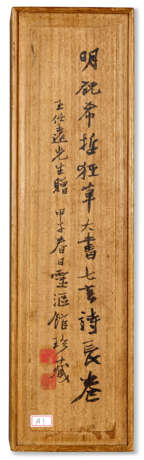 明祝希哲狂草大書七言詩長卷
王任遠先生贈 甲子春日靈漚館珍藏